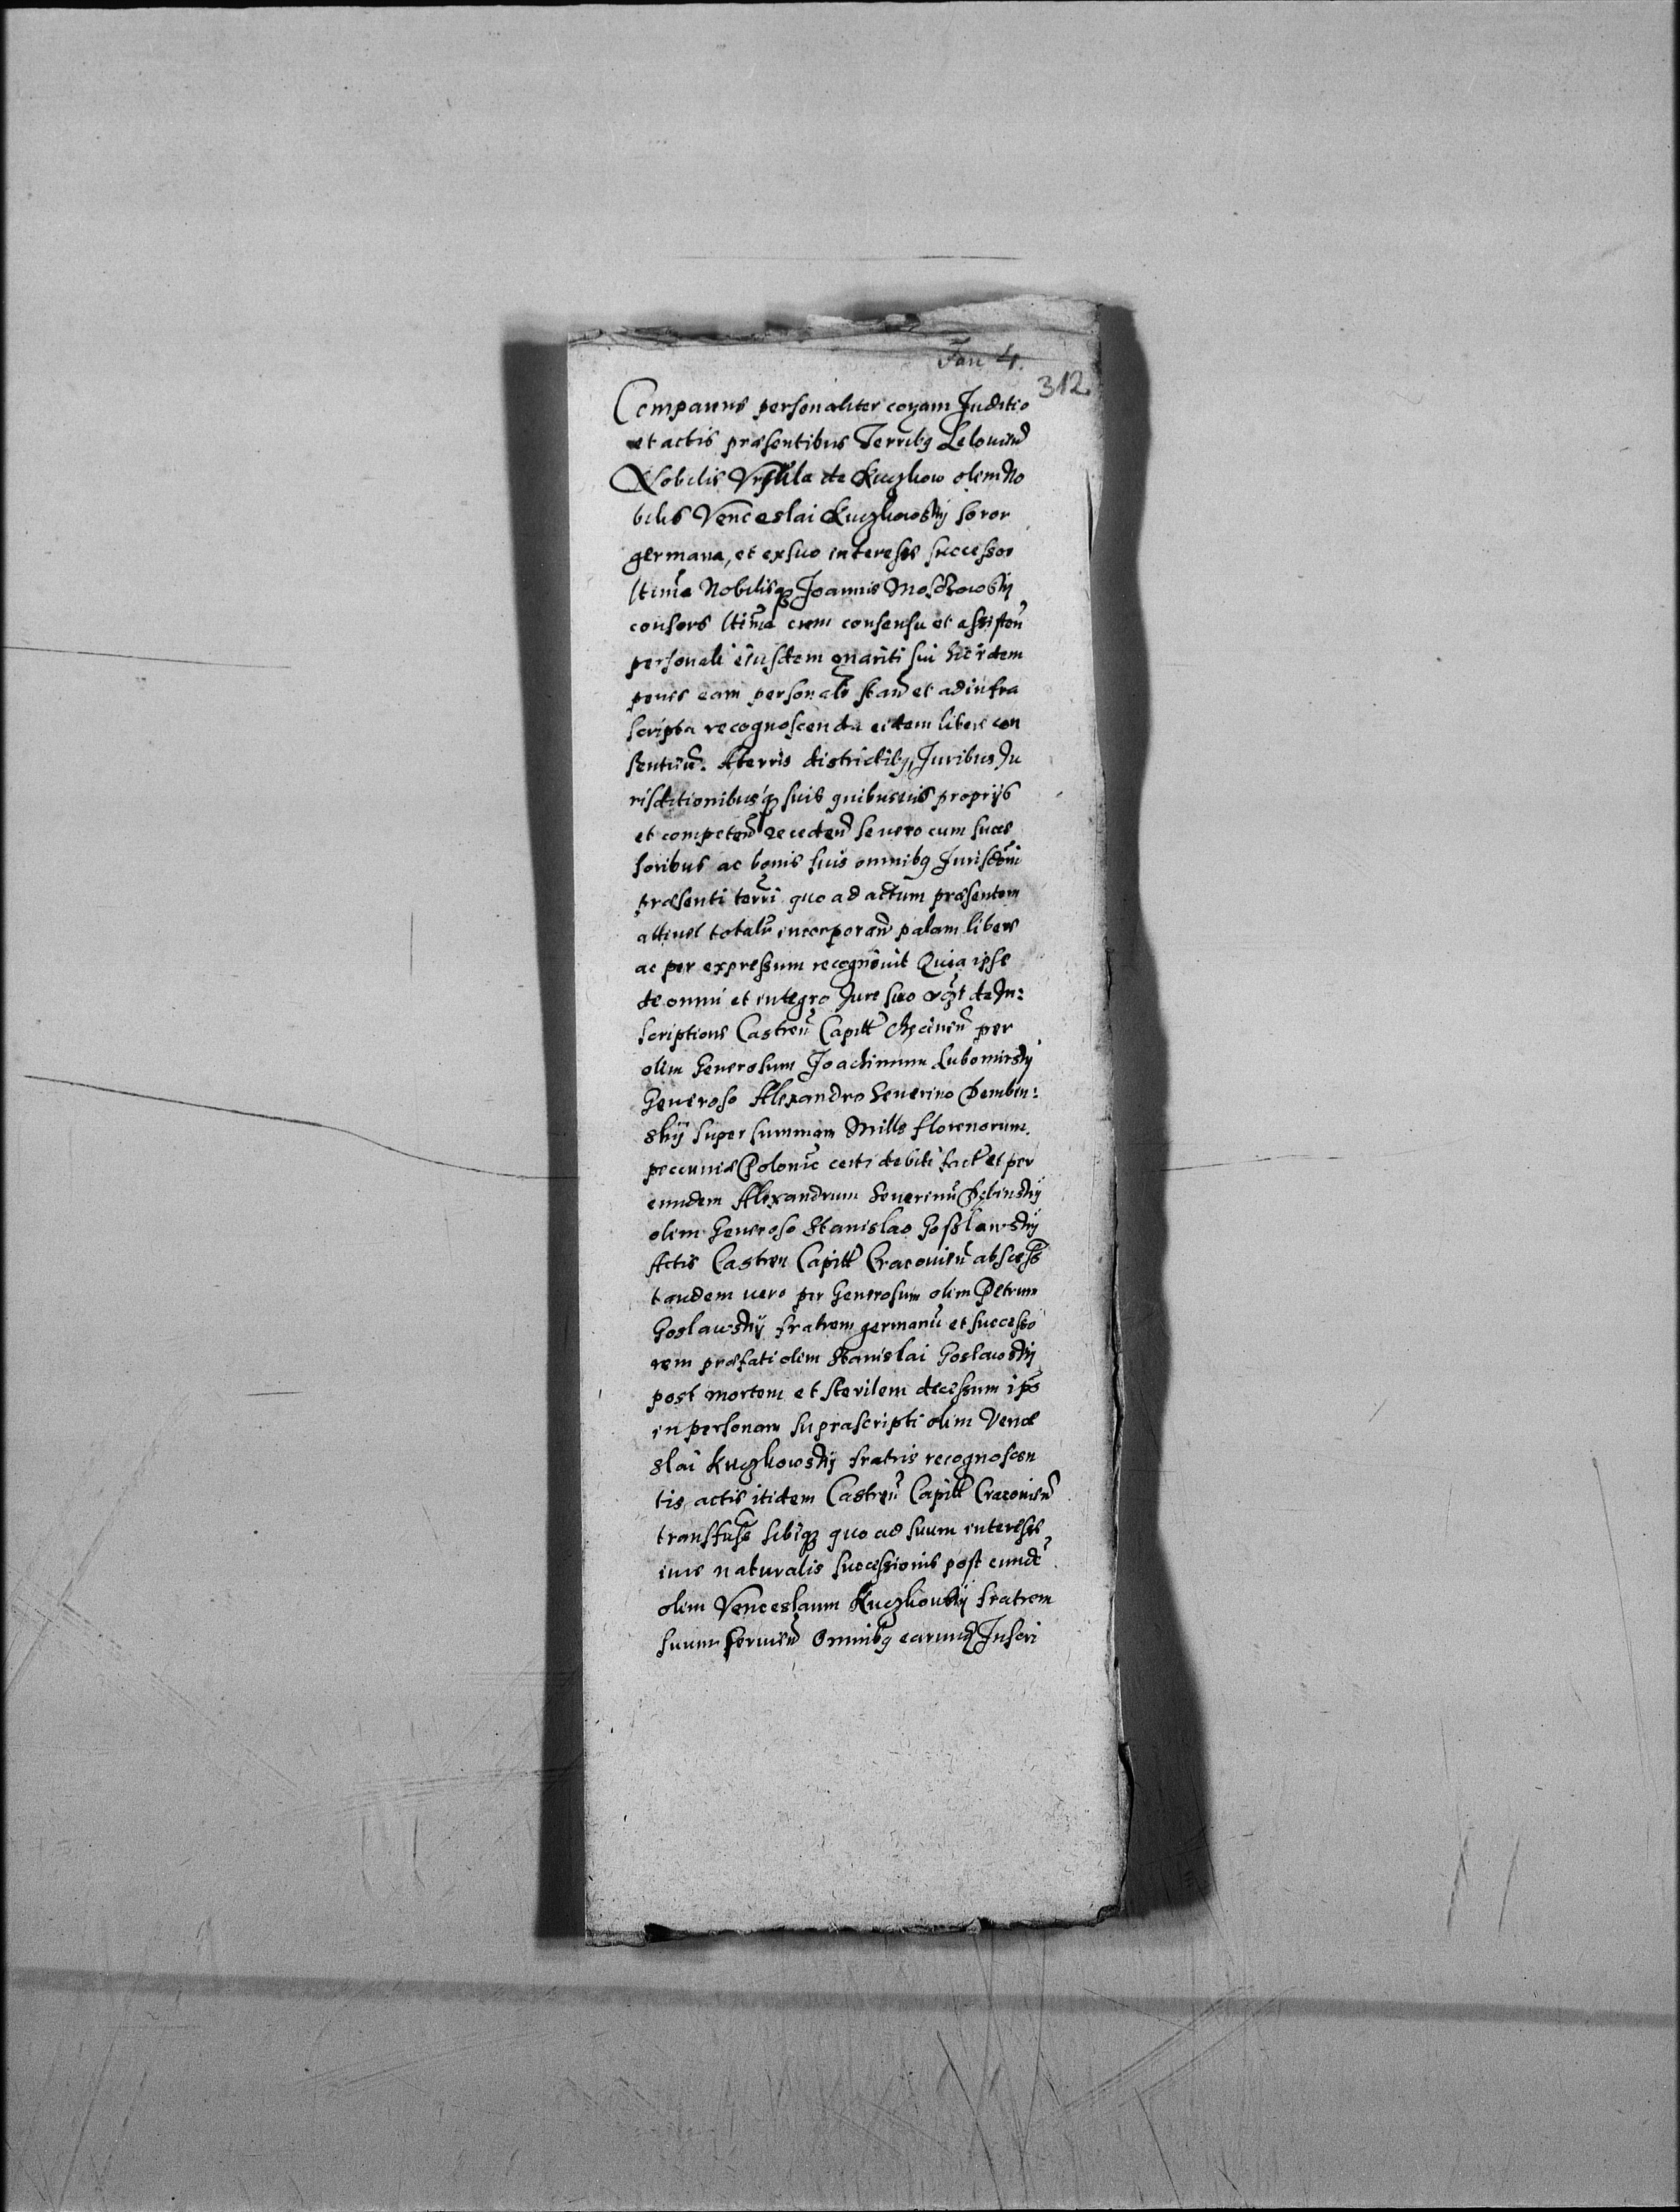 Fan 4.
312
Comparens personaliter coram Juditio
et actis præsentibus Terribg Leloviēn
Nobilis Vrsula de Kuczkow olim No
bilis Venceslai Kuczkowskij soror
germana, et ex suo interesse successor
ltima Nobilisq Joannis Moszkowskij
consors ltima cum consensu et assisten
personali eiusdem mariti sui hic idem
penes eam personalr stan et ad infra
scripta recognoscenda eidem libere con
sentien. A terris districtibg, Juribus Ju
risditionibusq suis quibusuis proprijs
et competen recedendo se uero cum succes
soribus ac bonis suis omnibg Jurisdōni
præsenti terri quo ad actum præsentem
attinet totalr incorporan palam libere
ac per expressum recognovit Quia ipse
de omni et integro Jure suo de In:
scriptione Castren Capitt Chęcinen per
olim Generosum Joachimum Lubomirskij
Generoso Alexandro Severino Dembin:
skij super summam Mille florenorum
pecuniæ Polonic certi debiti fact et per
eundem Alexandrum Severinū Dębinskij
olim Generoso Stanislao Gosslawskij
Actis Castren Capitt Cracovien
tandem uero per Generosum olim Petrum
Goslawskij fratrem germanū et successo
rem præfati olim Stanislai Goslawskij
post mortem et sterilem decessum ips
in personam suprascripti olim Vence
slai Kuczkowskij fratris recognoscen
tis actis itidem Castren Capitt Cracovien
transfuss sibiq quo ad suum interesse
iure naturalis successionis post eunde
olim Venceslaum Kuczkouskij fratrem
suum servien Omnibg earunq Inscri